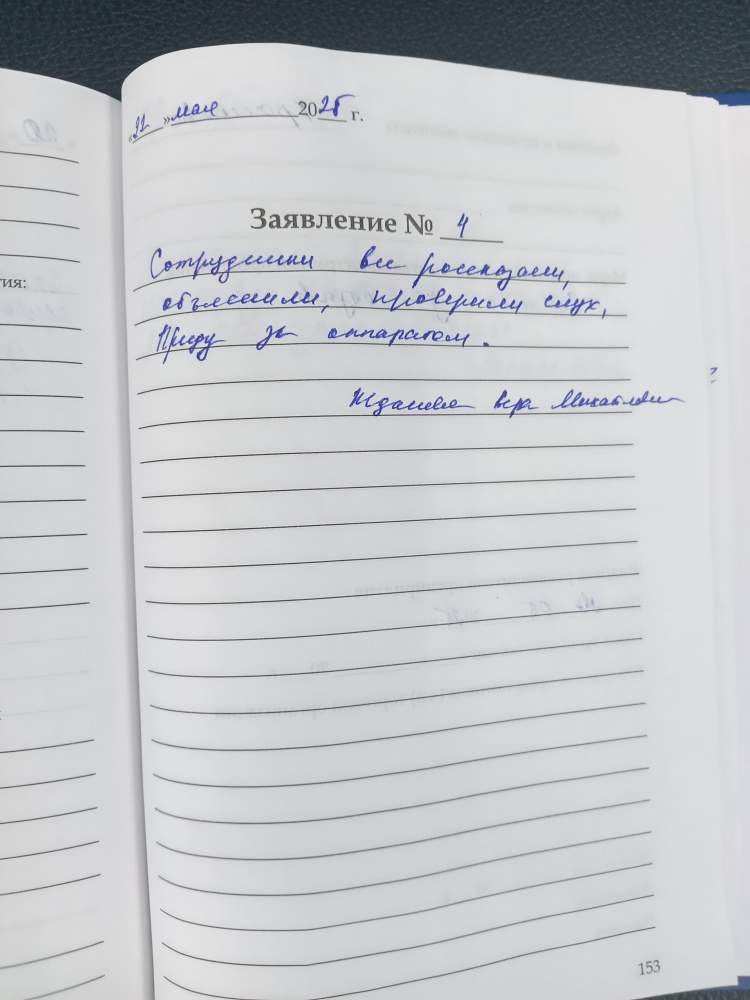 «22 » мая 2025 г.
Заявление № 4
Сотрудники все рассказали,
объяснили, проверили слух,
Приду за аппаратом.
Жданова Вера Михайловн
тия:
153